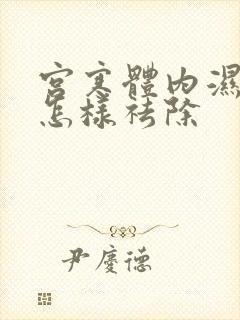 宮寒體內濕
怎樣祛除
尹慶德